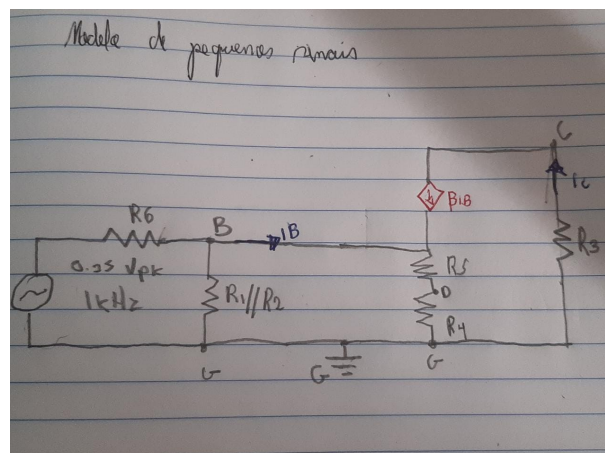 Modelo de pequenos sinais
C
IC
βIB
R6
B
IB
R3
R5
0.25 Vpk
D
1kHz
R1//R2
R4
G
G
G